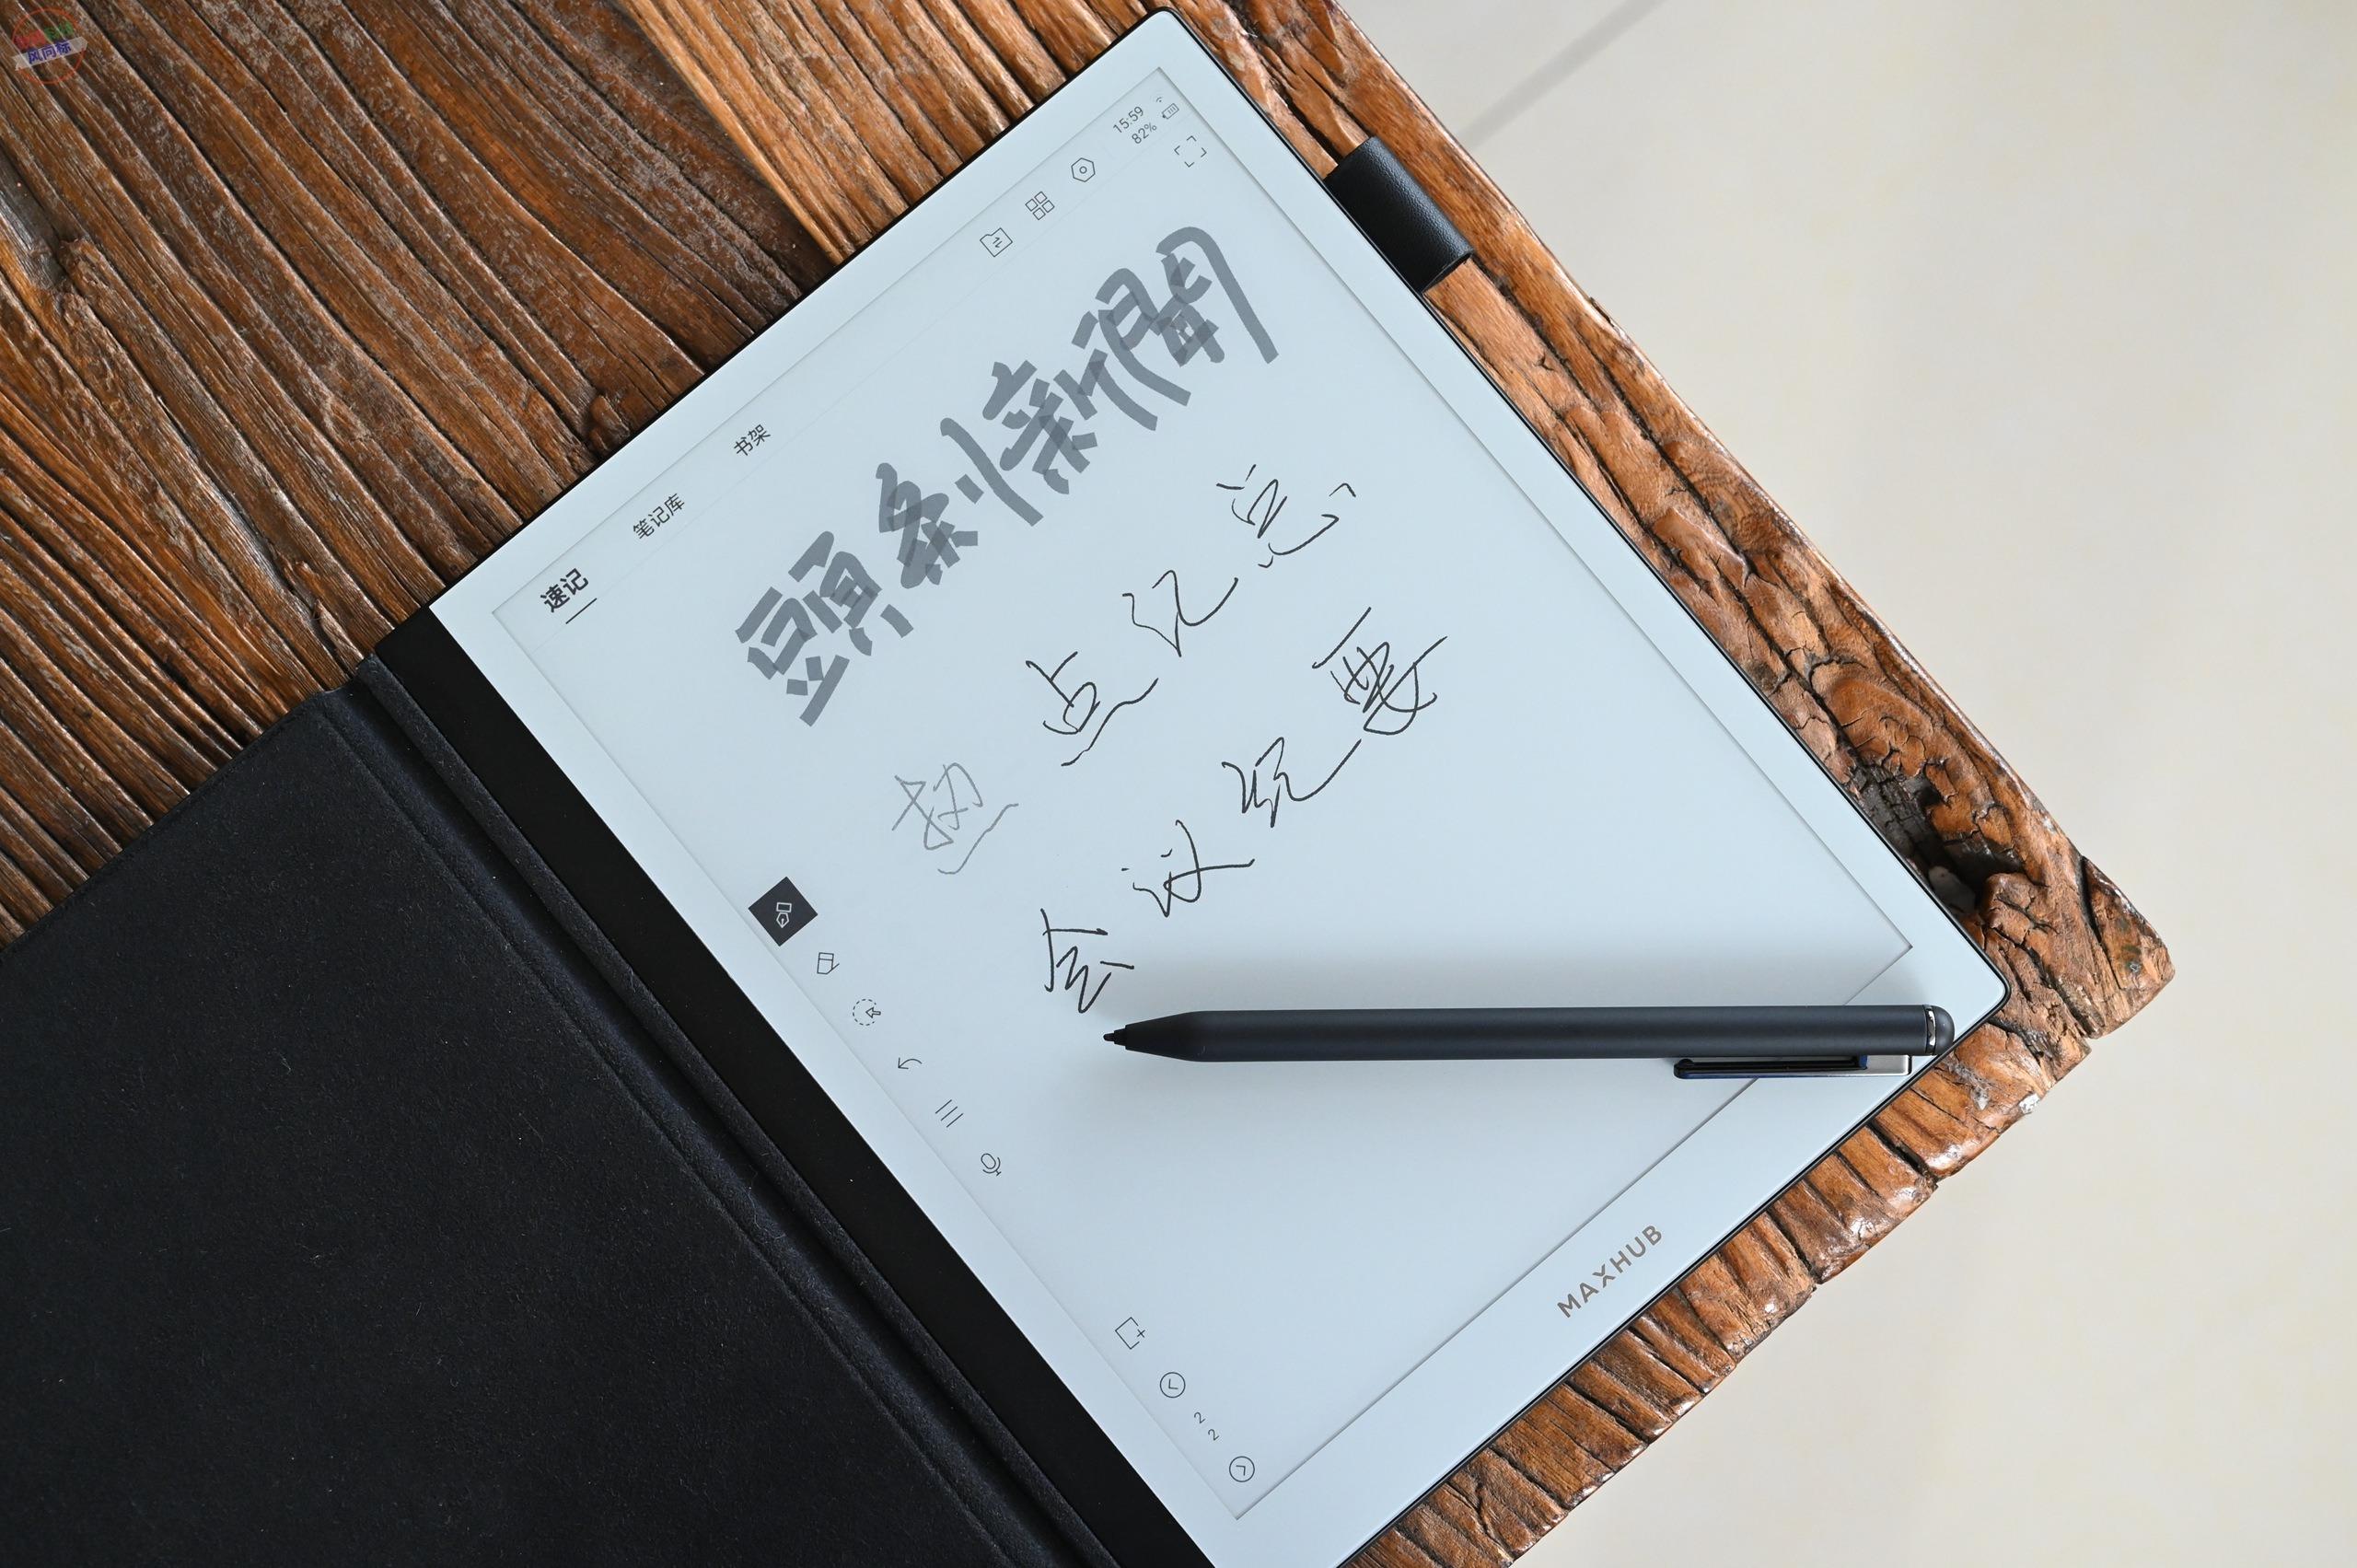 风向标
15:59
82%
速记 笔记库 书架
頭条新聞
热点汇总
会议纪要
2
2
MAXHUB